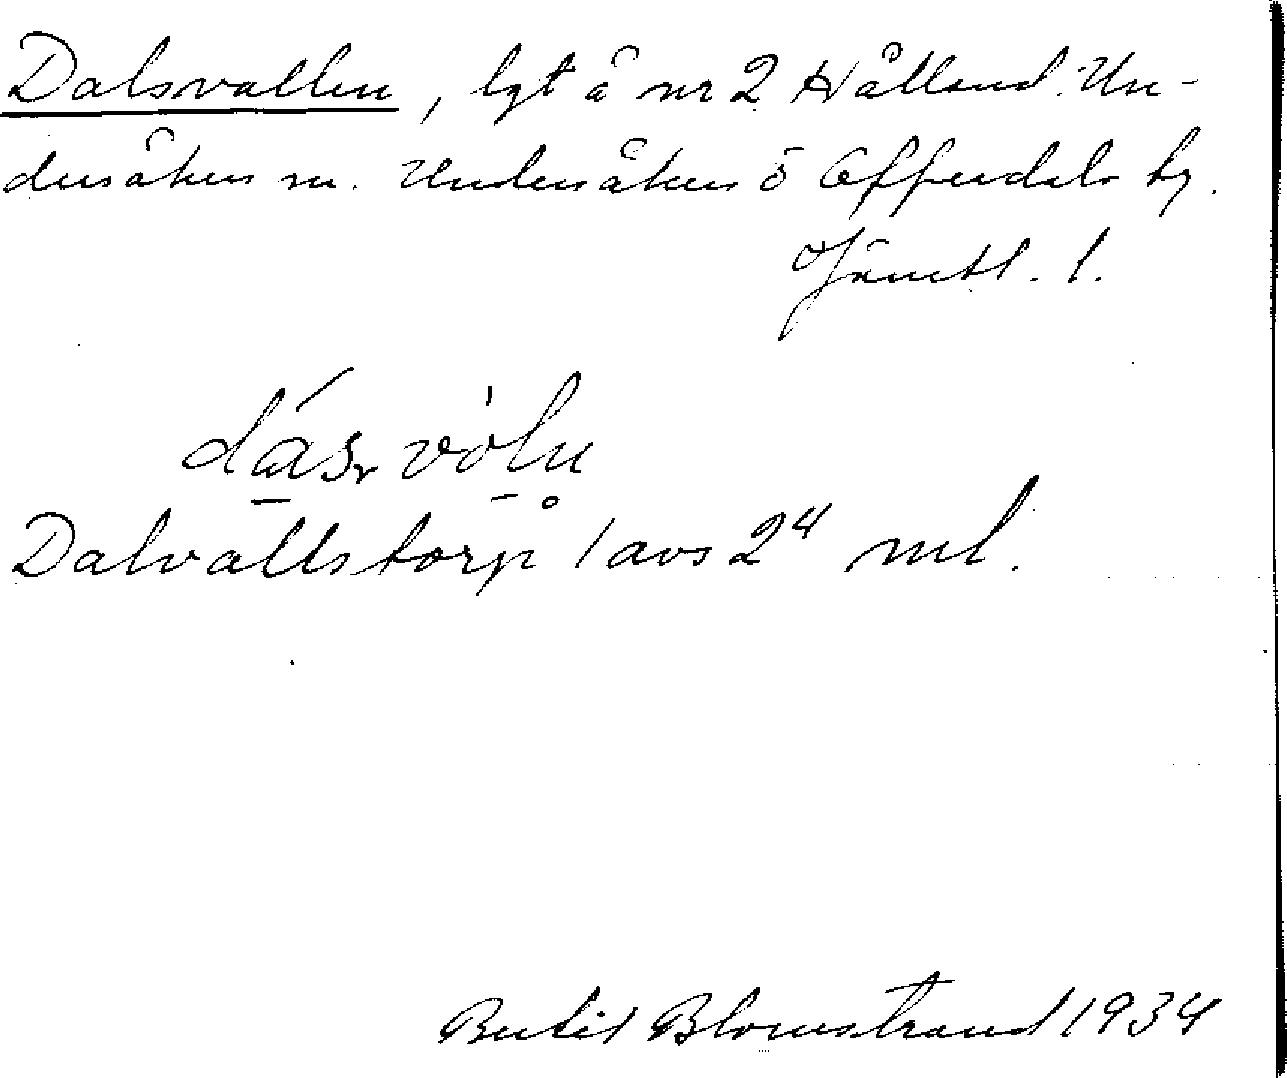 Dalsvallen, lgt å nr 2 Hålland. Un-
dersåkers sn. Undersåkers o Offerdals tg.
Jämtl. l.
dás, vòln
Dalvallstorp 1 avs 2⁴ ml.
Bertil Blomstrand 1934